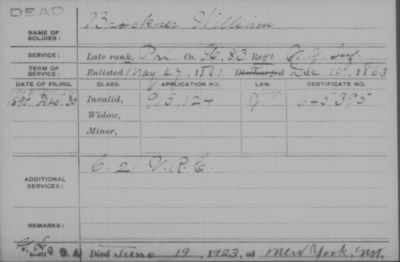 DEAD
NAME OF SOLDIER: Brockner William
SERVICE: Late rank, Pvt Co. 83 Reg't N.Y. Inf.
TERM OF SERVICE: Enlisted May 27, 1861 Discharged Dec 1863
DATE OF FILING. CLASS. APPLICATION NO. LAW. CERTIFICATE NO.
Invalid, 915124
Widow,
Minor,
ADDITIONAL SERVICES: C. 21 V.R.C.
REMARKS:
Died June 19, 1923, at New York,